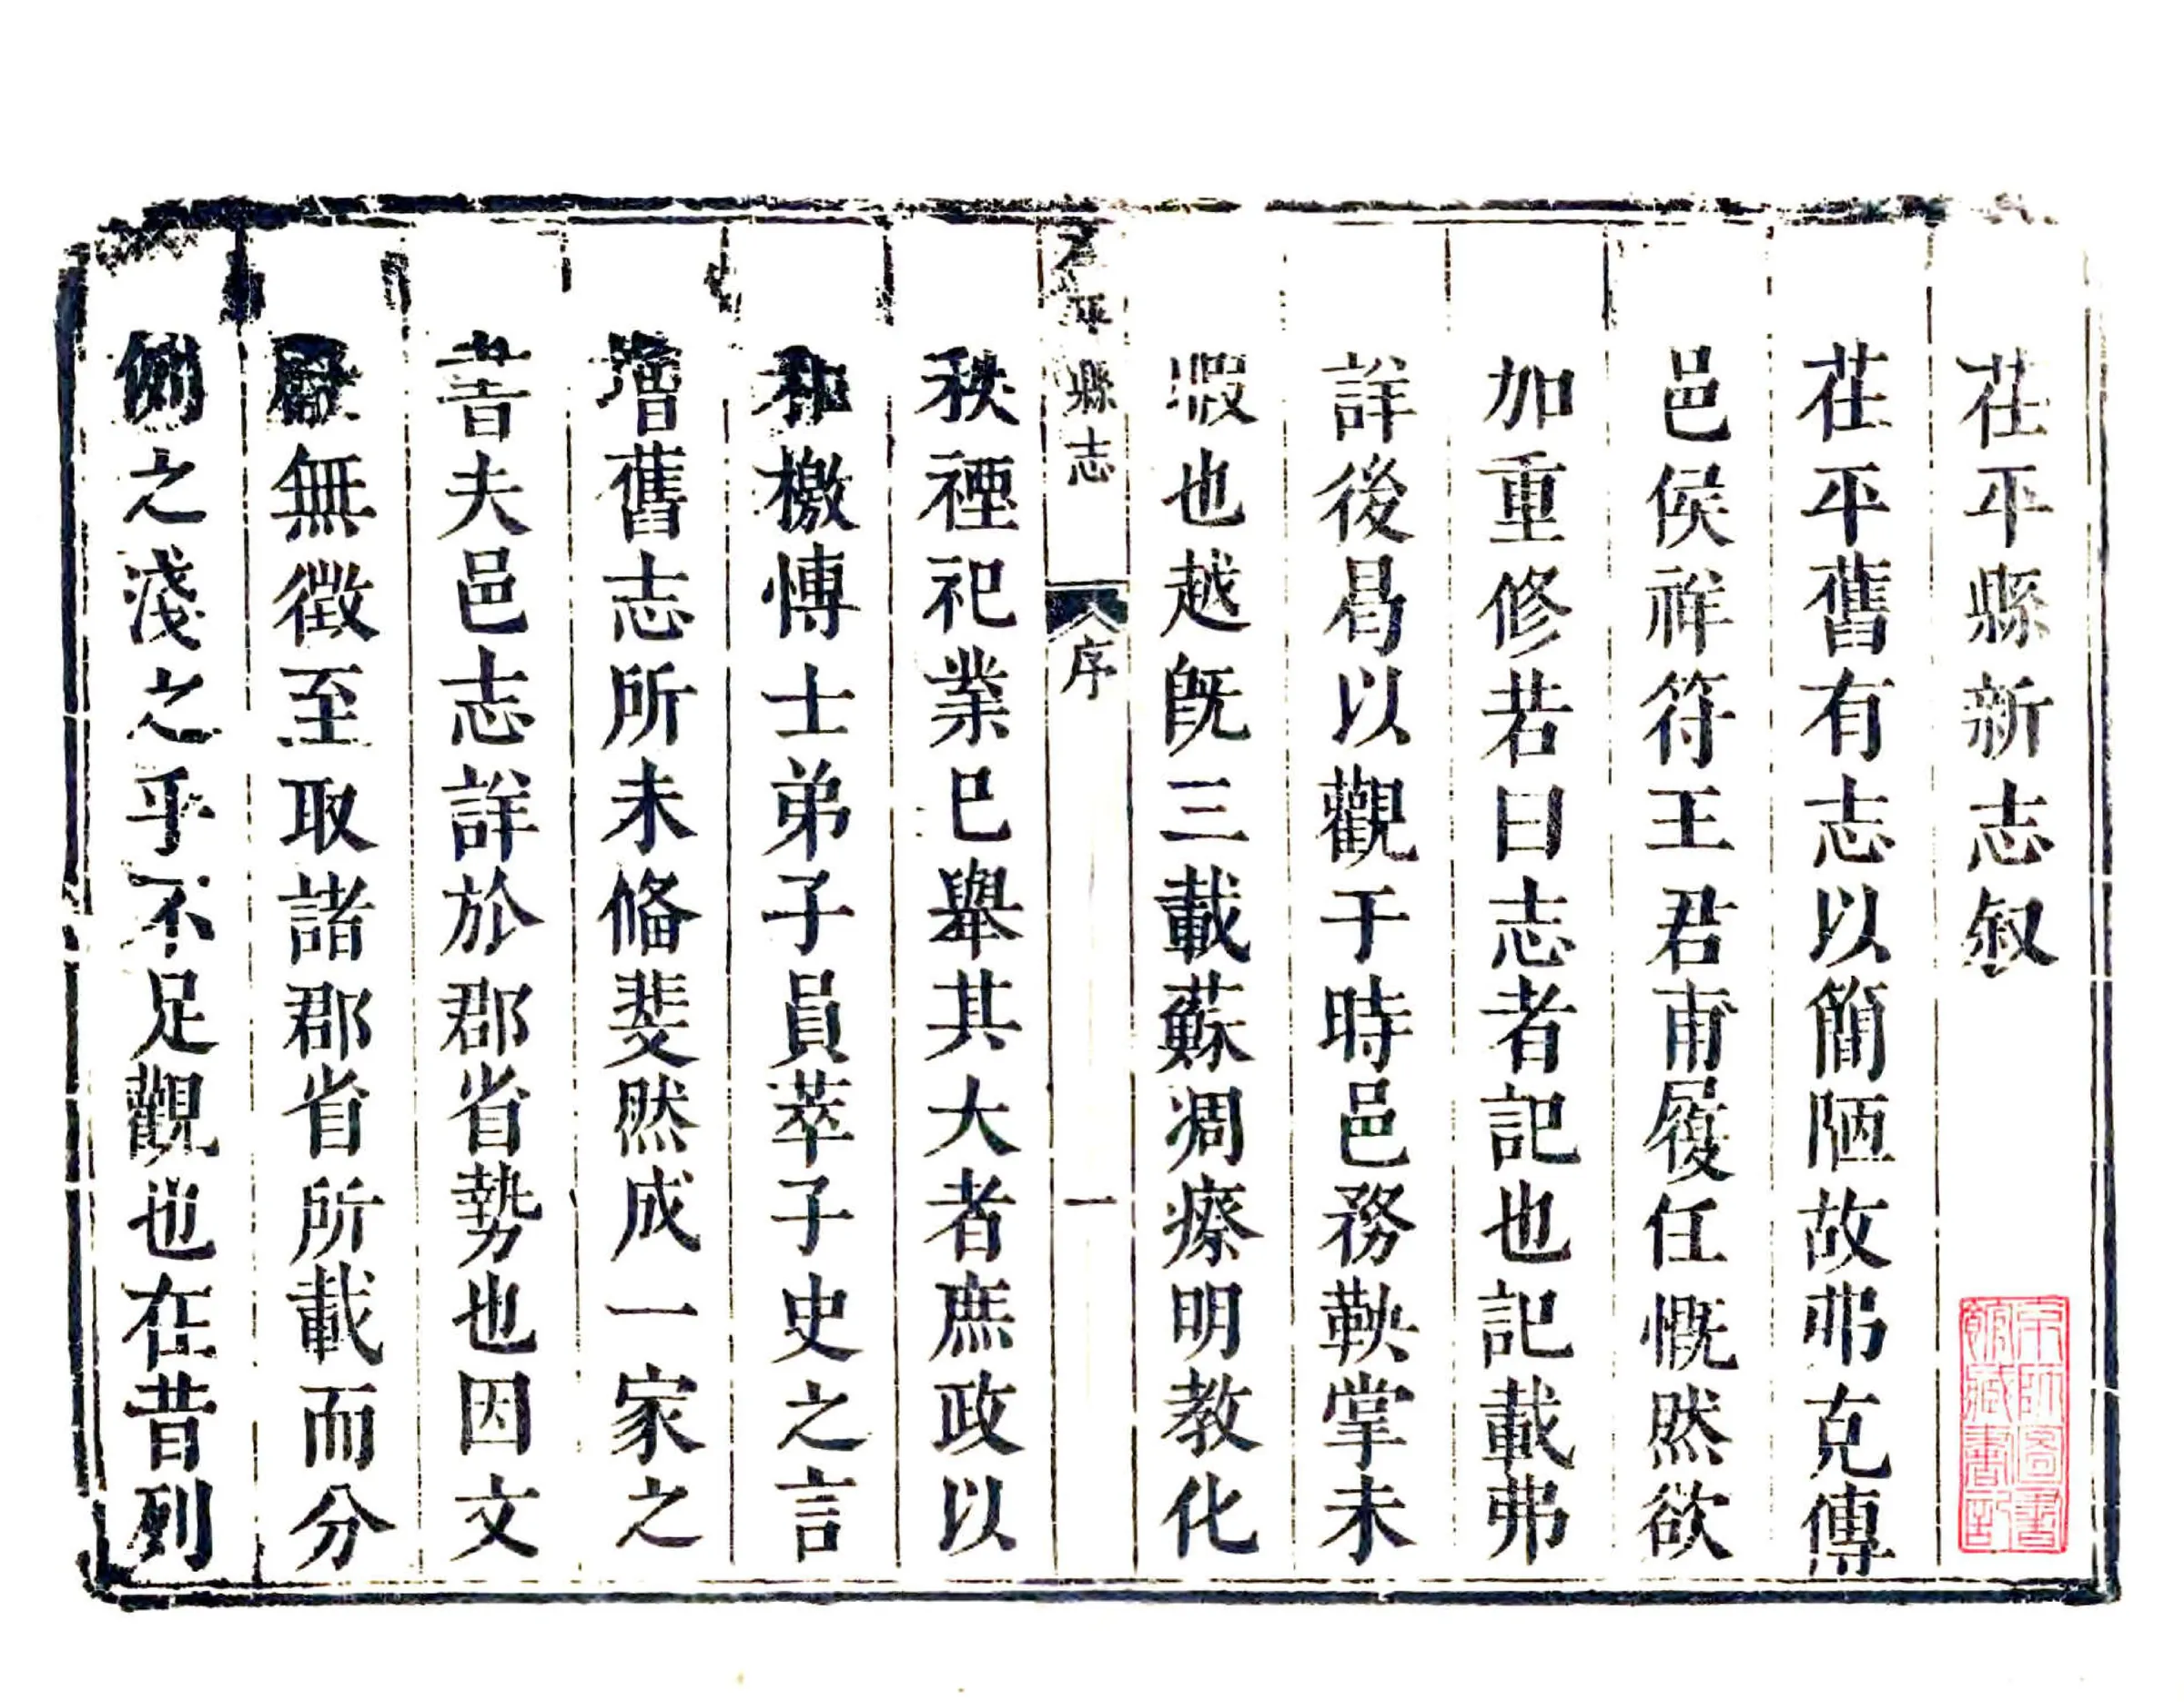 茌平縣新志叙
茌平舊有志以簡陋故弗克傳
邑侯祥符王君甫履任慨然欲
加重修若曰志者記也記載弗
詳後曷以觀于時邑務鞅掌未
暇也越旣三載蘇凋瘵明教化
秩禋祀業巳舉其大者庶政以
平縣志
序
一
和檄博士弟子員萃子史之言
增舊志所未備斐然成一家之
書夫邑志詳於郡省勢也因文
獻無徵至取諸郡省所載而分
之淺之乎不足觀也在昔列